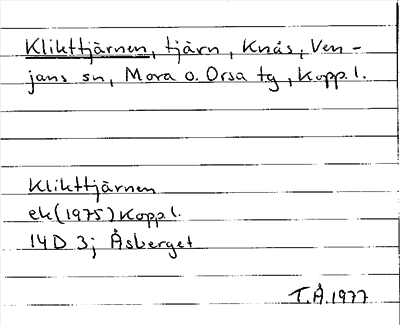 Klikttjärnen, tjärn, Knås, Ven-
jans sn, Mora o. Orsa tg, Kopp. l.
Klikttjärnen
ek (1975) Kopp l.
14D 3j Åsberget
T.Å. 1977